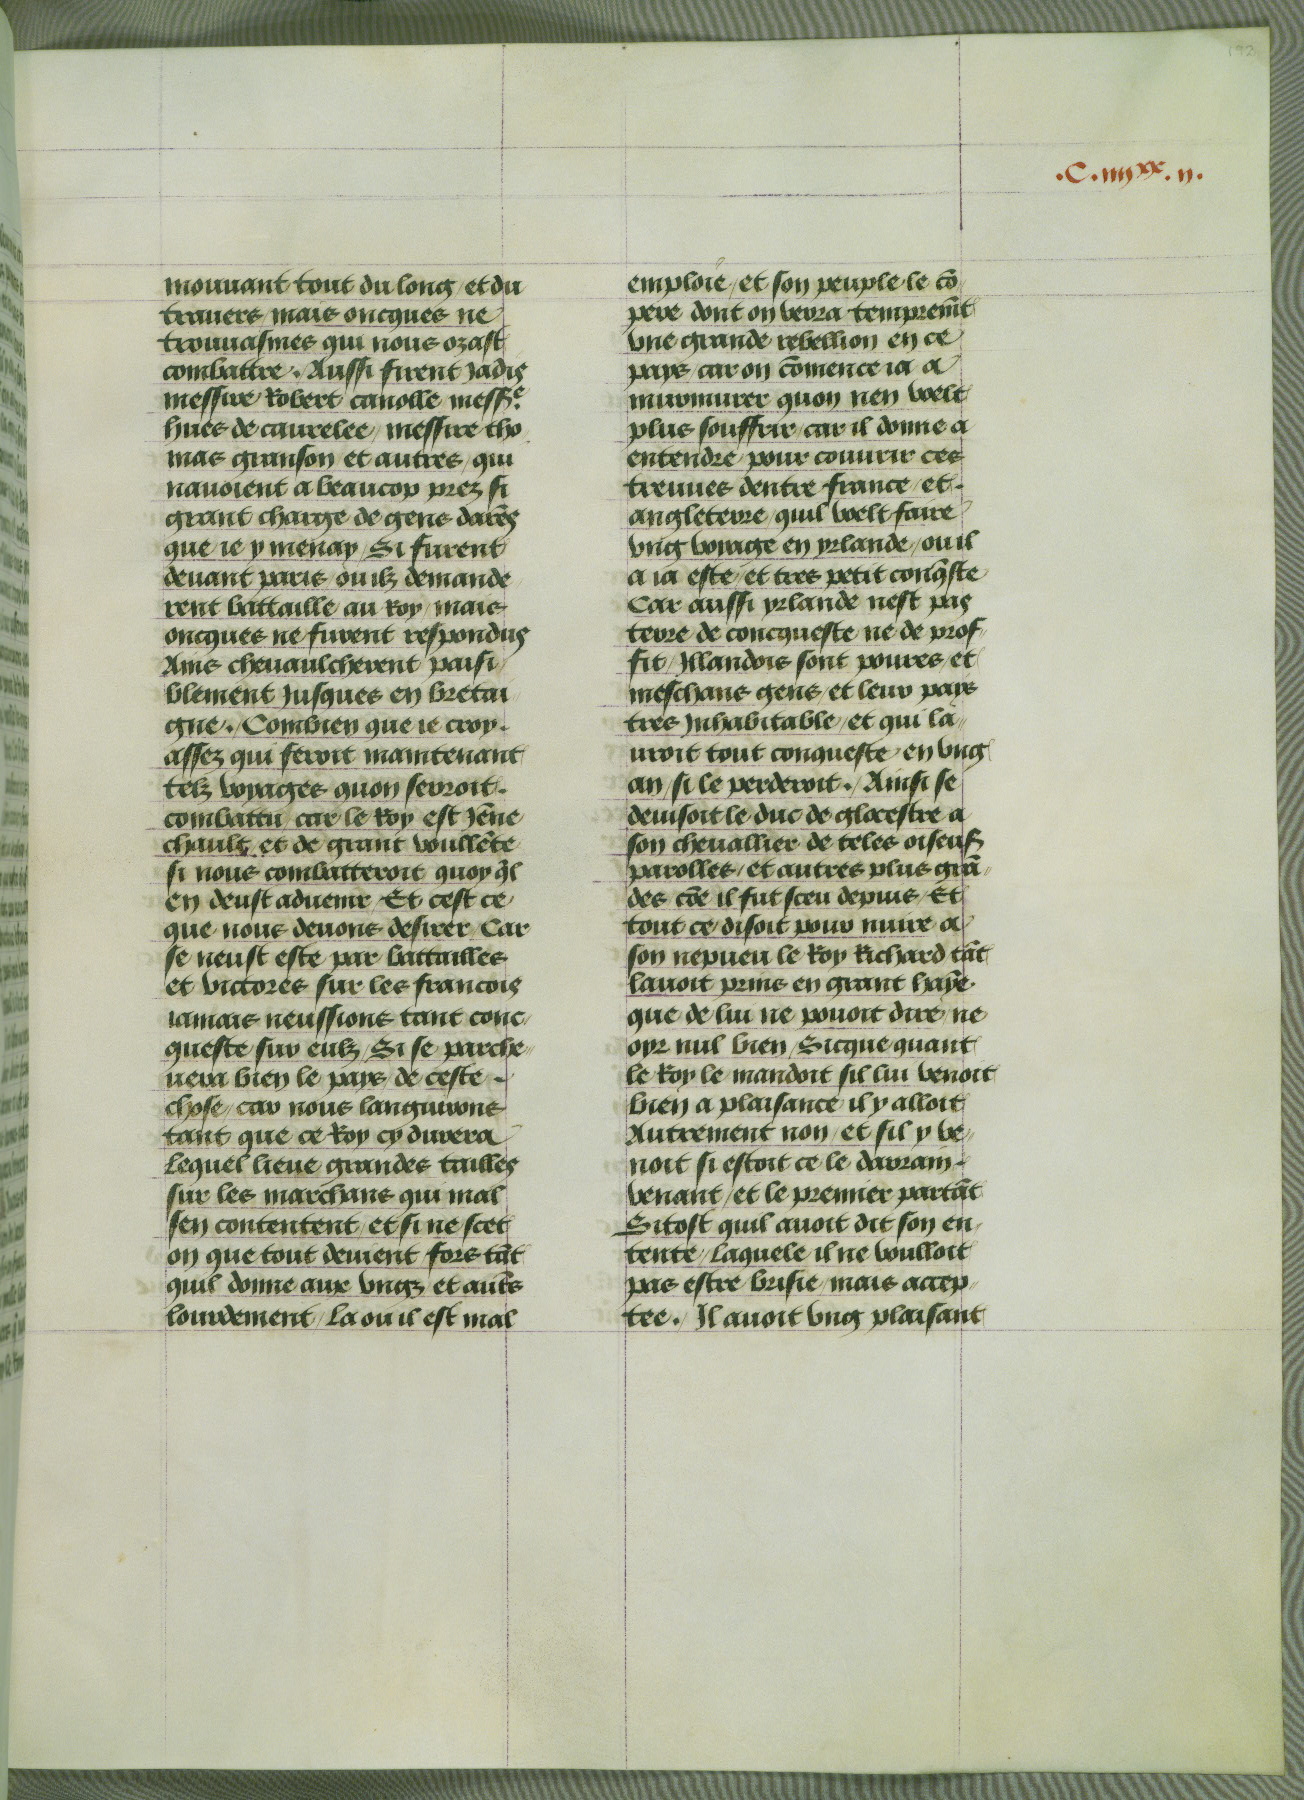 192
.C.iiijxx.ij.
mouuant tout du long / et du
trauers mais oncques ne
trouuasmes qui nous ozast
combattre . Aussi firent Jadis
messire Robert canolle mess.e
hues de caurelee / messire tho
mas granson et autres / qui
nauoient a beaucop prez si
grant charge de gens darēs
que ie y menay / Si furent
deuant paris / ou ilz demande
rent battaille au Roy / mais
oncques ne furent respondus
Ains cheuaulcherent paisi
blement Jusques en bretai
gne . / Combien que ie croy .
assez qui feroit maintenant
telz voyages quon seroit .
combattu car le Roy est Jēne
chault et de grant voullēte
si nous combatteroit quoy q̄l
en deust aduenir / Et cest ce
que nous deuons desirer Car
se neust este par battailles
et victores sur les francois
iamais neussions tant conc
queste sur eulz / Si se parche
uera bien le pays de ceste .
chose / car nous languirons
tant que ce Roy cy durera
Lequel lieue grandes tailles
sur les marchans qui mal
sen contentent / et si ne scet
on que tout deuient fors tāt
quil donne aux vngz et autēs
lourdement / La ou il est mal
emploie / et son peuple le cō
pere dont on verra tempremēt
vne grande rebellion en ce
pays / car on cōmence ia a
murmurer quon nen voelt
plus souffrir / car il donne a
entendre pour couurir ces
treuues dentre france / et .
angleterre / quil voelt faire
vng voyage en yrlande / ou il
a ia este / et tres petit conq̄ste
Car aussi yrlande nest pas
terre de concqueste ne de prof
fit / Jllandois sont poures / et
meschans gens / et leur pays
tres Jnhabitable / et qui la
uroit tout conqueste en vng
an / si le perderoit . / Ainsi se
deuisoit le duc de glocestre a
son cheuallier de teles oiseus
parolles / et autres plus grā
des cōe il fut sceu depuis / Et
tout ce disoit pour nuire a
son nepueu le Roy Richard tāt
lauoit prins en grant hayē .
que de lui ne pouoit dire / ne
oyr nul bien / Sicque quant
le Roy le mandoit sil lui venoit
bien a plaisance il y alloit
Autrement non / et sil y ve
noit si estoit ce le darrain .
venant / et le premier partāt
Sitost quil auoit dit son en
tente / Laquele il ne voulloit
pas estre brisie / mais accep
tee . / Jl auoit vng plaisant